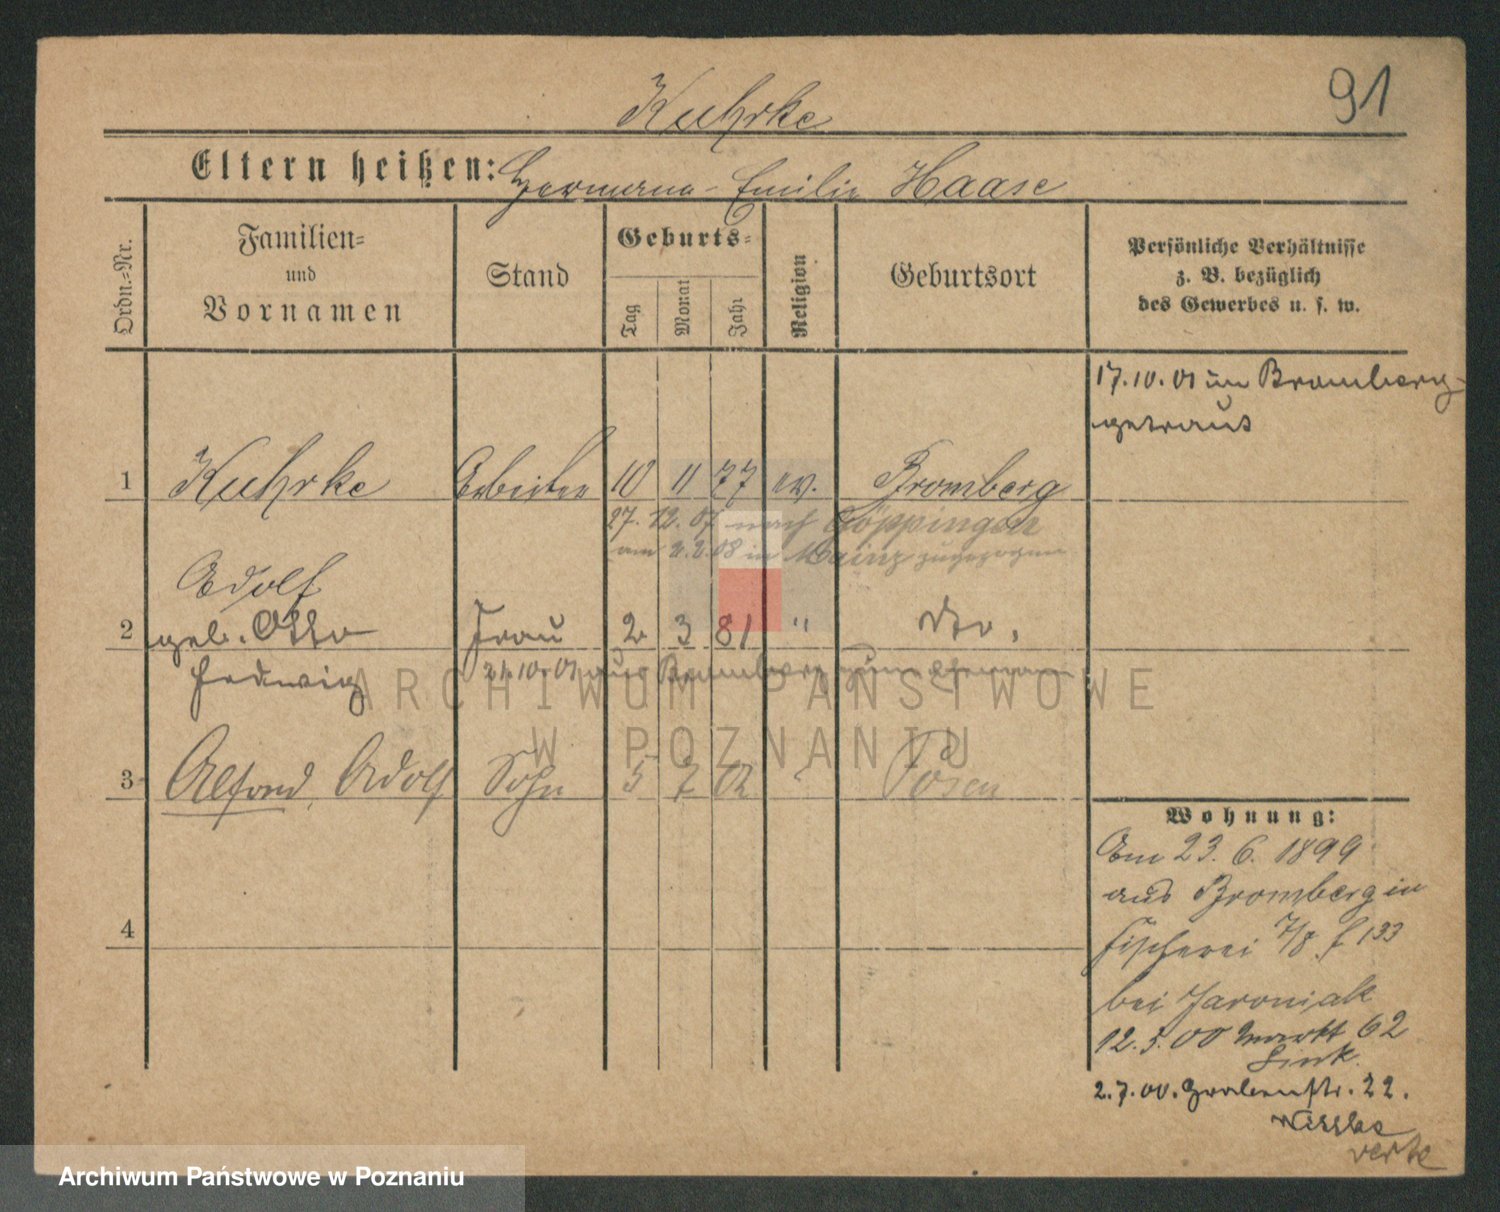 91
Kuhrke
Eltern heißen: Hermann - Emilie Haase
Ordn.-Nr.
Familien-
und
Vornamen
Stand
Geburts-
Tag
Monat
Jahr
Religion
Geburtsort
Persönliche Verhältnisse
z. B. bezüglich
des Gewerbes u. s. w.
17.10.01 in Bromberg
getraut
1 Kuhrke Arbeiter 10 11 77 ev. Bromberg
27. 12. 07 nach Göppingen
am 2.2.08 in Mainz zugezogen
Adolf
2 geb. Otto Frau 2 3 81 " dto.
Hedwig 21.10.01 aus Bromberg zum Ehemann
3 Alfred, Adolf Sohn 5 7 02 " Posen
4
Wohnung:
Am 23. 6. 1899
aus Bromberg in
Fischerei 7/8 f 133
bei Jaroniak
12.5.00 Markt 62
Link
2.7.00. Grabenstr. 22.
verte
ARCHIWUM PAŃSTWOWE
W POZNANIU
Archiwum Państwowe w Poznaniu